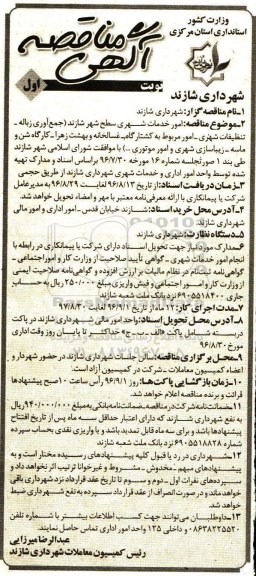 وزارت کشور
استانداری استان مرکزی
آگهی مناقصه
نوبت اول
شهرداری شازند
۱-نام مناقصه گزار: شهرداری شازند
۲-موضوع مناقصه: امور خدمات شهری سطح شهر شازند (جمع‌آوری زباله -
تنظیفات شهری - امور مربوط به کشتارگاه - غسالخانه و بهشت زهرا - کارگاه شن و
ماسه - زیباسازی شهری و امور موتوری ...) با موافقت شورای اسلامی شهر شازند
طی بند ۱ صورتجلسه شماره ۱۶ مورخه ۹۶/۷/۳۰ براساس اسناد و مدارک تهیه
شده توسط واحد امور اداری و خدمات شهری شهرداری شازند از طریق حجمی
۳-زمان دریافت اسناد: از تاریخ ۹۶/۸/۱۳ لغایت ۹۶/۸/۲۹ به مدیرعامل
شرکت یا پیمانکاری با ارائه معرفی‌نامه معتبر با مهر و امضاء تحویل خواهد شد.
۴-آدرس محل خرید اسناد: شازند خیابان قدس - امور اداری و امور مالی
شهرداری شازند
۵-دستگاه نظارت: شهرداری شازند
۶-مدارک مورد نیاز جهت تحویل اسناد دارای شرکت یا پیمانکاری در رابطه با
انجام امور خدمات شهری - گواهی تأیید صلاحیت از وزارت کار و امور اجتماعی -
گواهی‌نامه ثبت‌نام در نظام مالیات بر ارزش افزوده و گواهی‌نامه صلاحیت ایمنی
از وزارت کار و امور اجتماعی و فیش واریزی مبلغ ۲۵۰/۰۰۰ ریال به حساب
جاری ۶۹۰۵۵۱۸۴۰۰ نزد بانک ملت شعبه شازند
۷-مدت اجرای کار: ۱۲ ماه از تاریخ ۹۶/۹/۱ لغایت ۹۷/۸/۳۰
۸-آدرس محل تحویل اسناد: واحد امور مالی شهرداری شازند در پاکت
دربسته شامل پاکت «الف - ب - ج» حداکثر تا پایان روز وقت اداری
مورخ ۹۶/۸/۳۰
۹-محل برگزاری مناقصه: سالن جلسات شهرداری شازند در حضور شهردار و
اعضاء کمیسیون معاملات - شرکت در کمیسیون آزاد است.
۱۰-زمان بازگشایی پاکت‌ها: روز ۹۶/۹/۱ رأس ساعت ۱۰ صبح پیشنهادها
قرائت و برنده مناقصه اعلام خواهد شد.
۱۱-ضمانت‌نامه شرکت در مناقصه، ضمانت‌نامه بانکی به مبلغ ۲۴۰/۰۰۰/۰۰۰ ریال
به نفع شهرداری شازند که دارای اعتبار حداقل سه ماه پس از تاریخ افتتاح
پیشنهادها باشد و برای سه ماه قابل تمدید باشد و یا واریزی نقدی به حساب سپرده
شماره ۶۹۰۵۵۱۸۸۲۸ نزد بانک ملت شعبه شازند
۱۲-شهرداری در رد یا قبول کلیه پیشنهادهای رسیده مختار است و به
پیشنهادهای مبهم - مخدوش - مشروط و غیرخوانا ترتیب اثر نخواهد داد و
سپرده‌های نفرات اول - دوم و سوم تا تاریخ عقد قرارداد نزد شهرداری باقی
خواهد ماند و در صورت انصراف از عقد قرارداد سپرده به نفع شهرداری ضبط
خواهد شد.
۱۳-داوطلبان می‌توانند جهت کسب اطلاعات بیشتر با شماره تلفن
۰۸۶۳۸۲۲۵۵۲۰ و داخلی ۱۲۵ واحد امور اداری تماس حاصل نمایند.
عبدالرضا میرزایی
رئیس کمیسیون معاملات شهرداری شازند